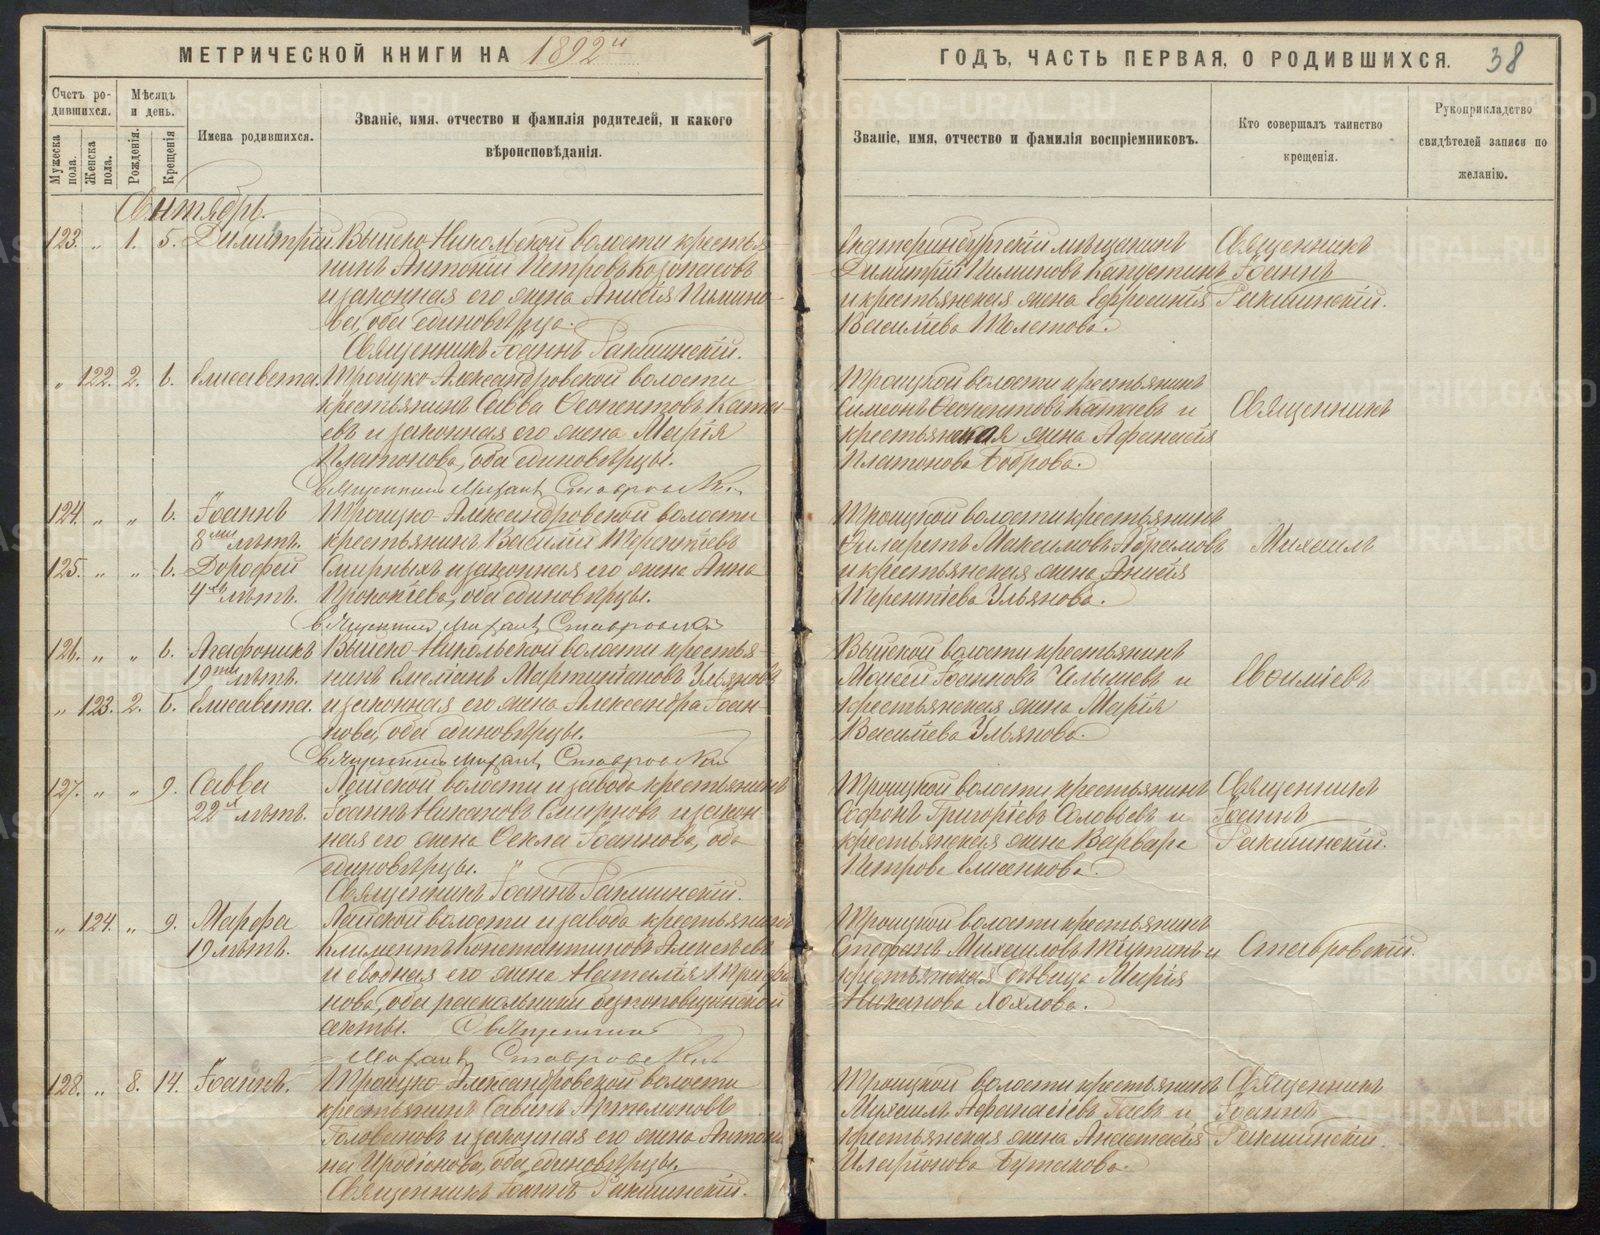 МЕТРИЧЕСКОЙ КНИГИ НА 1892й
Счетъ родившихся.
Мужеска пола.
Женска пола.
Мѣсяцъ и день.
Рожденія.
Крещенія
Имена родившихся.
Званіе, имя, отчество и фамилія родителей, и какого
вѣроисповѣданія.
Сентябрь.
123. „ 1. 5. Димитрій Выйско-Никольской волости крестья-
нинъ Антоній Петровъ
и законная его жена Анисія Пимино-
ва, оба единовѣрцы.
Священникъ Іоаннъ Ракшинскій.
„ 122. 2. 6. Елисавета. Троицко-Александровской волости
крестьянинъ Савва Ѳеопентовъ Ката-
евъ и законная его жена Марія
Платонова, оба единовѣрцы.
Священникъ Михаилъ Ставровскій
124. „ „ 6. Іоаннъ Троицко-Александровской волости
8ми лѣтъ. крестьянинъ Василій Терентіевъ
125. „ „ 6. Дорофей Смирныхъ и законная его жена Анна
4хъ лѣтъ. Прокопіева, оба единовѣрцы.
Священникъ Михаилъ Ставровскій
126. „ „ 6. Агафоникъ Выйско-Никольской волости крестья-
19ти лѣтъ. нинъ Емеліанъ Мартиніановъ Ульяновъ
„ 123. 2. 6. Елисавета. и законная его жена Александра Іоан-
нова, оба единовѣрцы.
Священникъ Михаилъ Ставровскій
127. „ „ 9. Савва Лайской волости и завода крестьянинъ
22х лѣтъ. Іоаннъ Никановъ Смирновъ и закон-
ная его жена Ѳекла Іоаннова, оба
единовѣрцы.
Священникъ Іоаннъ Ракшинскій.
„ 124. „ 9. Марфа Лайской волости и завода крестьянинъ
19 лѣтъ. Климентъ Константиновъ Алексѣевъ
и сводная его жена Наталія
нова, оба раскольники безпоповщинской
секты. Священникъ
Михаилъ Ставровскій
128. „ 8. 14. Іоаннъ. Троицко-Александровской волости
крестьянинъ Савинъ Артемоновъ
Головановъ и законная его жена Антони-
на Иродіонова, оба единовѣрцы.
Священникъ Іоаннъ Ракшинскій.
ГОДЪ, ЧАСТЬ ПЕРВАЯ, О РОДИВШИХСЯ. 38
Званіе, имя, отчество и фамилія воспріемниковъ.
Кто совершалъ таинство
крещенія.
Рукоприкладство
свидѣтелей записи по
желанію.
Екатеринбургскій мѣщанинъ Священникъ
Димитрій Пиминовъ Капустинъ Іоаннъ
и крестьянская жена Евфросинія Ракшинскій.
Василіева Толстова.
Троицкой волости крестьянинъ
Симеонъ Ѳеопентовъ Катаевъ и Священникъ
крестьянская жена Афанасія
Платонова Боброва.
Троицкой волости крестьянинъ
Филаретъ Максимовъ Абрамовъ Михаилъ
и крестьянская жена Анисія
Терентіева Ульянова.
Выйской волости крестьянинъ
Моисей Іоанновъ Челышевъ и Евѳиміевъ
крестьянская жена Марія
Василіева Ульянова.
Троицкой волости крестьянинъ Священникъ
Софонъ Григоріевъ Соловьевъ и Іоаннъ
крестьянская жена Варвара Ракшинскій.
Петрова Елисенкова.
Троицкой волости крестьянинъ
Стефанъ Михаиловъ и Ставровскій.
крестьянская дѣвица Марія
Никанова Хохлова.
Троицкой волости крестьянинъ Священникъ
Михаилъ Афанасіевъ Гаевъ и Іоаннъ
крестьянская жена Анастасія Ракшинскій.
Иларіонова Бутакова.
METRIKI.GASO-URAL.RU